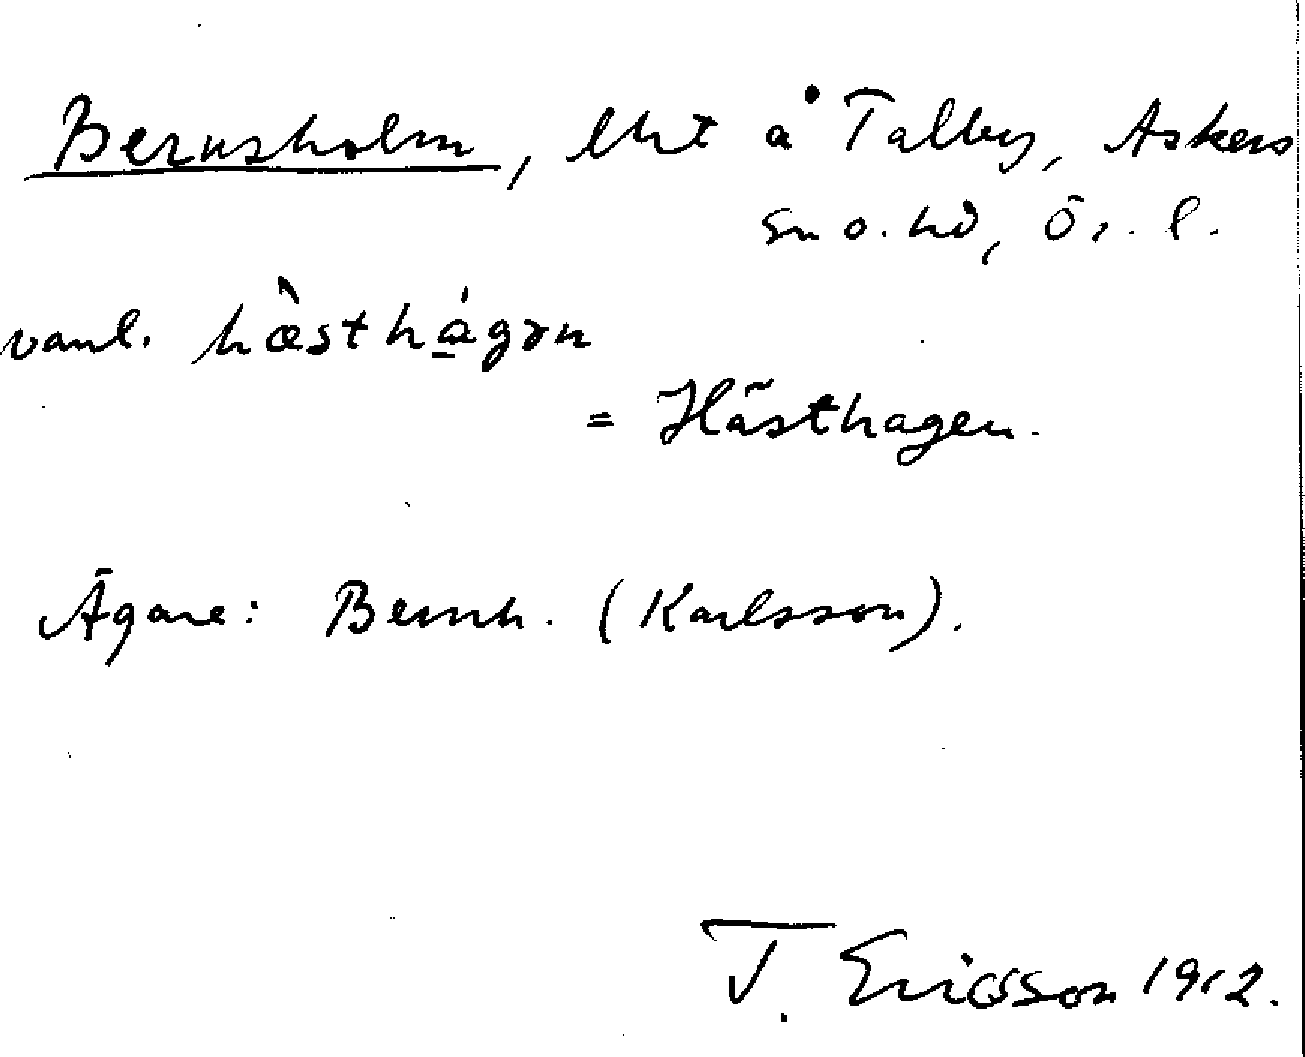 Bernsholm, lht å Talby, Askers
sn o. hd, Ör. l.
vanl. hæ̀sthágən
= Hästhagen.
Ägare: Bernh. (Karlsson).
T. Ericsson 1912.